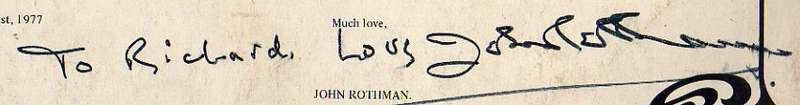 st, 1977
Much love,
To Richard. Love John Rothman
JOHN ROTHMAN.